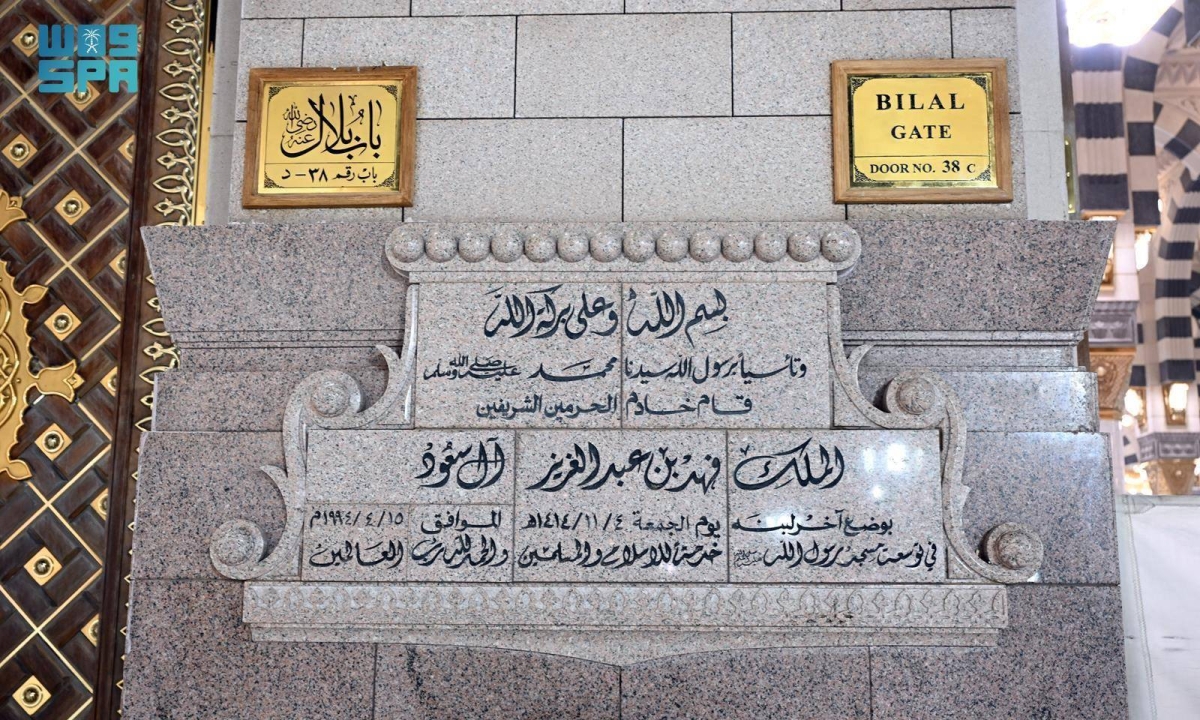 واس
SPA
باب بلال رضي الله عنه
باب رقم ٣٨ - د
BILAL
GATE
DOOR NO. 38 C
بسم الله وعلى بركة الله
وتأسياً برسول الله سيدنا محمد صلى الله عليه وسلم
قام خادم الحرمين الشريفين
الملك فهد بن عبد العزيز آل سعود
بوضع آخر لبنه يوم الجمعة ١٤١٤/١١/٤هـ الموافق ١٩٩٤/٤/١٥م
في توسعة مسجد رسول الله ﷺ خدمة للاسلام والمسلمين والحمد لله رب العالمين